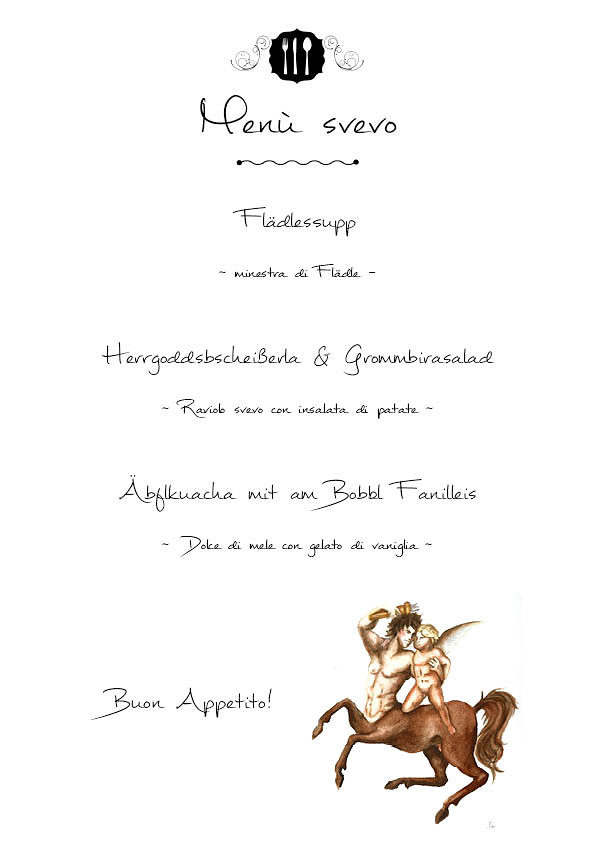 Menù svevo
Flädlessupp
~ minestra di Flädle -
Herrgoddsbscheißerla & Grommbirasalad
~ Raviolo svevo con insalata di patate ~
Äbflkuacha mit am Bobbl Fanilleis
~ Dolce di mele con gelato di vaniglia ~
Buon Appetito!